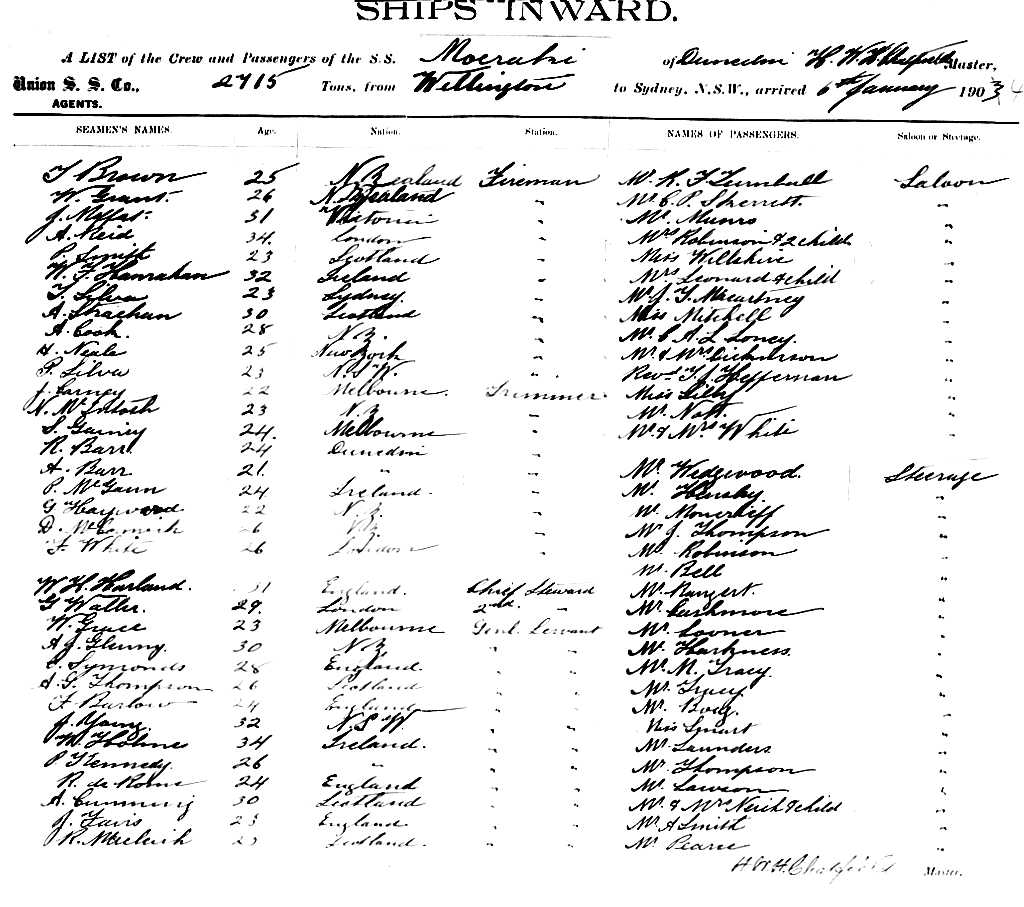 SHIPS INWARD.
A LIST of the Crew and Passengers of the S.S. Moeraki of Dunedin H. W. H. Chatfield Master,
Union S. S. Co., 2715 Tons, from Wellington to Sydney, N.S.W., arrived 6th January 1903 4
AGENTS.
SEAMEN'S NAMES Age. Nation. Station. NAMES OF PASSENGERS. Saloon or Steerage.
T Brown 25 N Zealand Fireman Mr R. F Turnbull Saloon
W. Grant 26 N Zealand " Mr C. P. Skerrett "
J. Moffat 31 Victoria " Mr Munro "
A. Reid 34. London " Mrs Robinson & 2 child "
P. Smith 23 Scotland " Miss Wiltshire "
W. F. Hanrahan 32 Ireland " Mrs Leonard & child "
T. Silva 23 Sydney " Mr J. Y. Macartney "
A. Strachan 30 Scotland " Miss Mitchell "
A. Cook. 28 N. Z. " Mr C A L Loney "
H. Neale 25 New York " Mr & Mrs Dickinson "
P. Silva 23 N.S.W. " Revd T. J. Heffernan "
J. Carney 22 Melbourne. Trimmer Miss Lilly "
N. McIntosh 23 N Z " Mr Natt. "
S. Gainey 24. Melbourne " Mr & Mrs White "
R. Barr 24 Dunedin "
A. Barr 21. " " Mr Wedgwood. Steerage
P. McGann 24 Ireland. " Mr Hensby "
G Hayward 22 N. Z " Mr Moncrieff "
D. McCormick 26 " Mr J. Thompson "
F. White 26 London " Mr Robinson "
Mr Bell "
W. H. Harland. 31 England. Chief Steward Mr Rangert. "
G Waller. 29. London 2nd " Mr Cashmore "
W. Grace 23 Melbourne Genl. Servant Mr Looner "
A J. Glenny. 30 N Z " " Mr Harkness. "
C. Symonds 28 England. " " Mr M. Tracy "
A. G. Thompson 26 Scotland " " Mr Tracy "
F. Barlow 24 England " " Mr Boag. "
J. Young. 32 N. S. W. " " Miss Smart "
W. Holmes 34 Ireland. " " Mr Saunders "
P Kennedy. 26 " " " Mr Thompson "
R. de Rome 24 England " " Mr Lawson "
A. Cumming 30 Scotland " " Mr & Mrs Neish & child "
J. Favis 23 England " " Mr A Smith "
R. 23 Scotland. " " Mr Pearce "
H W. H. Chatfield Master.